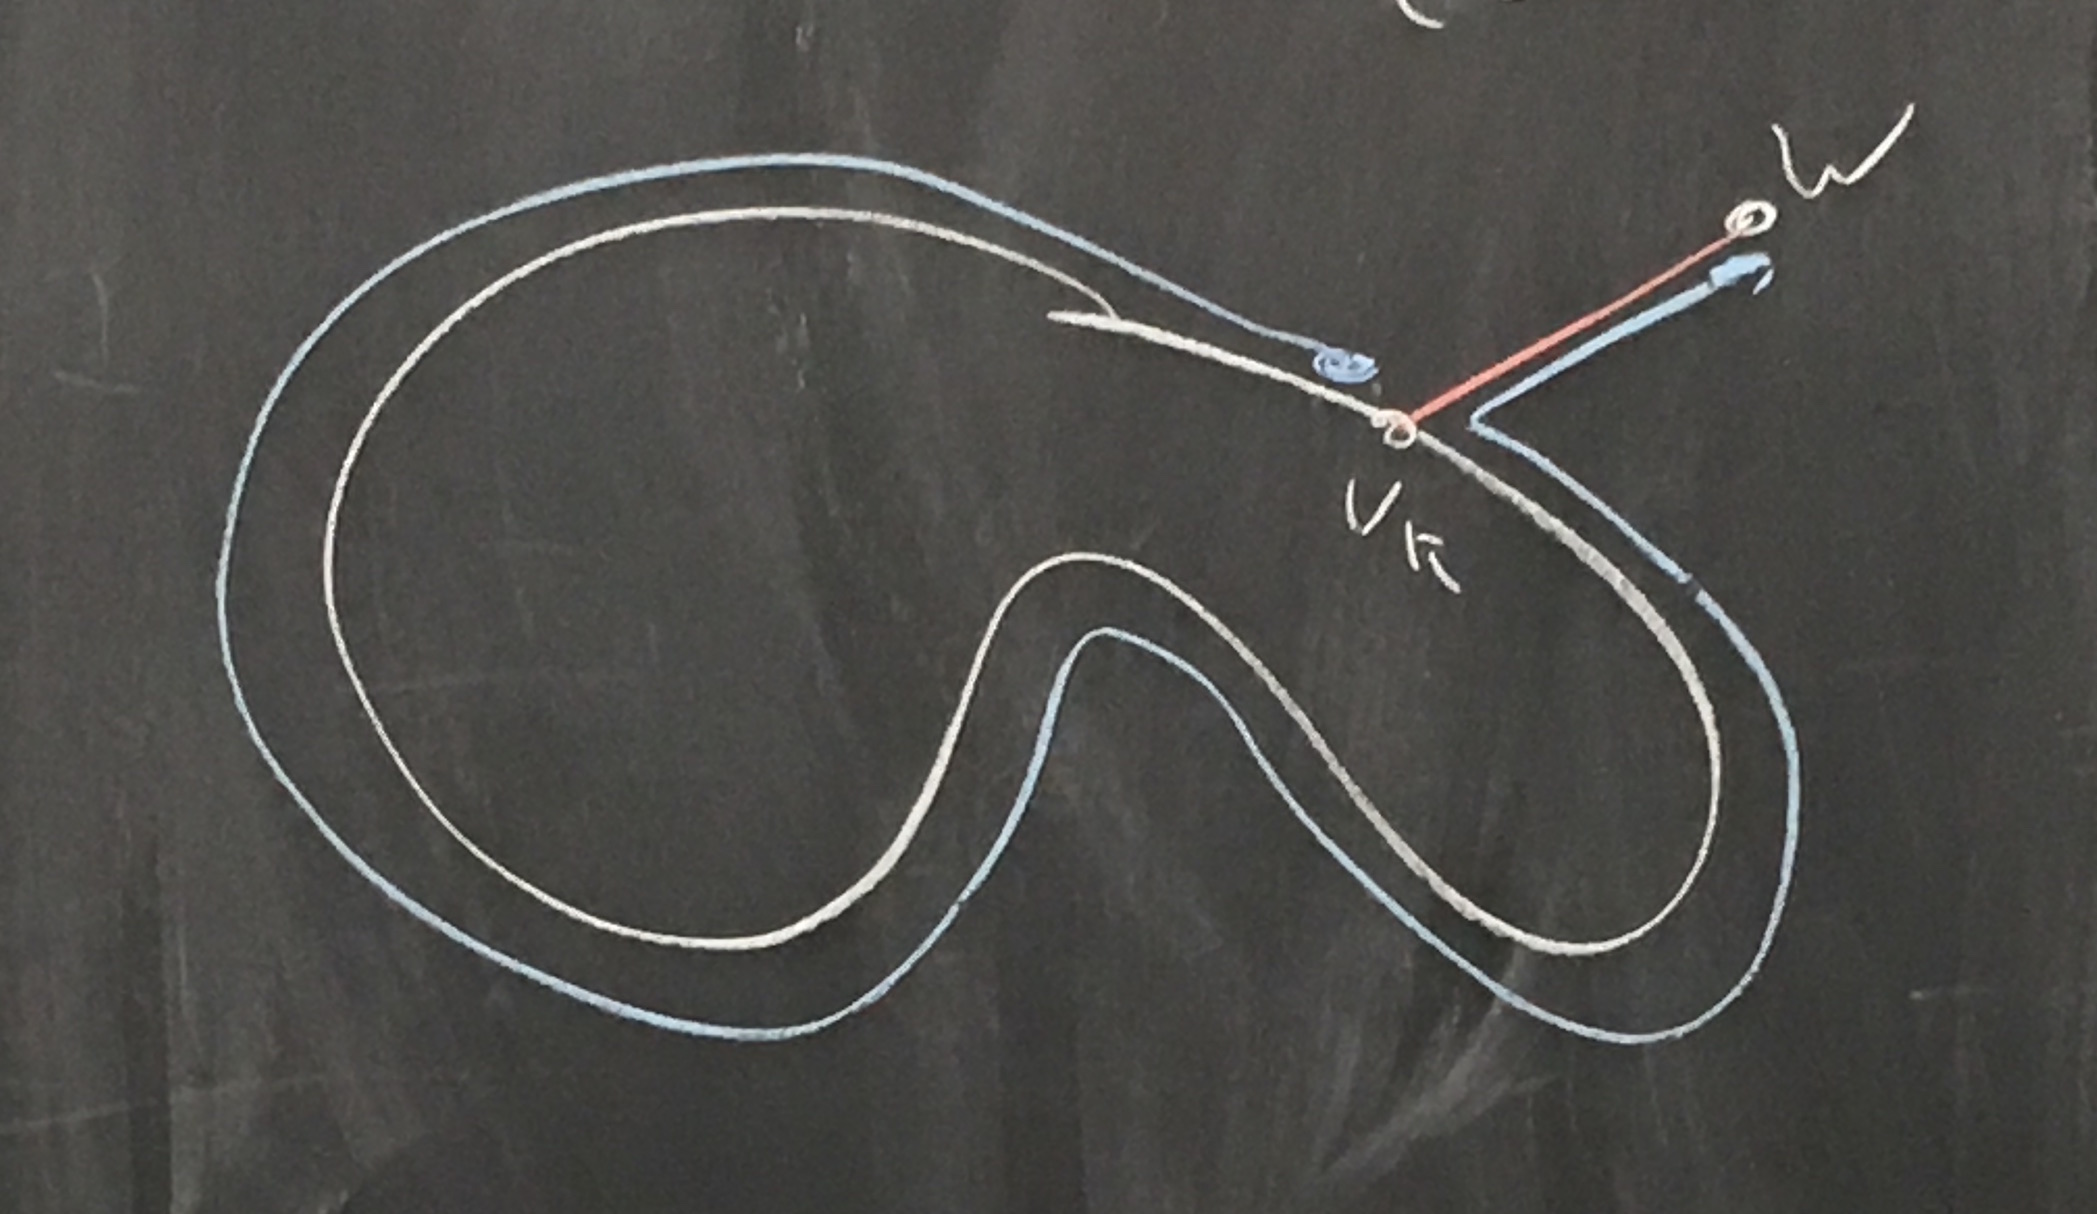 W
VK